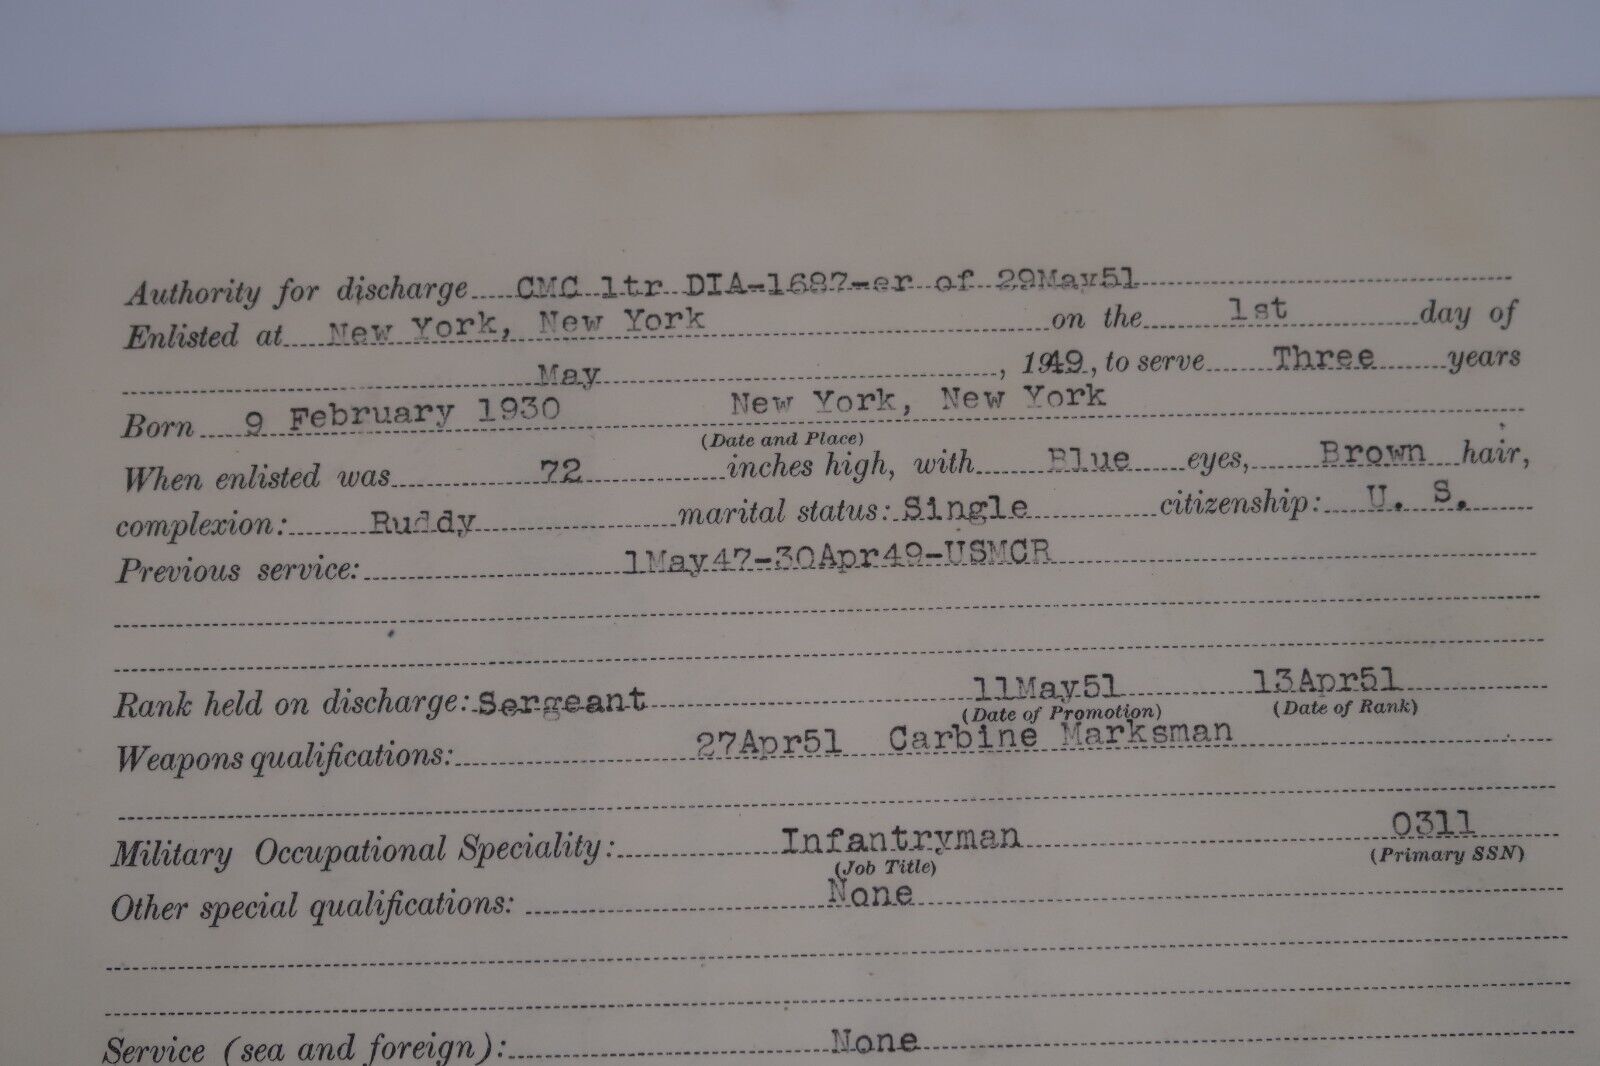 Authority for discharge CMC ltr DIA-1687-er of 29May51
Enlisted at New York, New York on the 1st day of
May, 1949, to serve Three years
Born 9 February 1930 New York, New York
(Date and Place)
When enlisted was 72 inches high, with Blue eyes, Brown hair,
complexion: Ruddy marital status: Single citizenship: U. S.
Previous service: 1May47-30Apr49-USMCR
Rank held on discharge: Sergeant 11May51 13Apr51
(Date of Promotion) (Date of Rank)
Weapons qualifications: 27Apr51 Carbine Marksman
Military Occupational Speciality: Infantryman 0311
(Job Title) (Primary SSN)
Other special qualifications: None
Service (sea and foreign): None